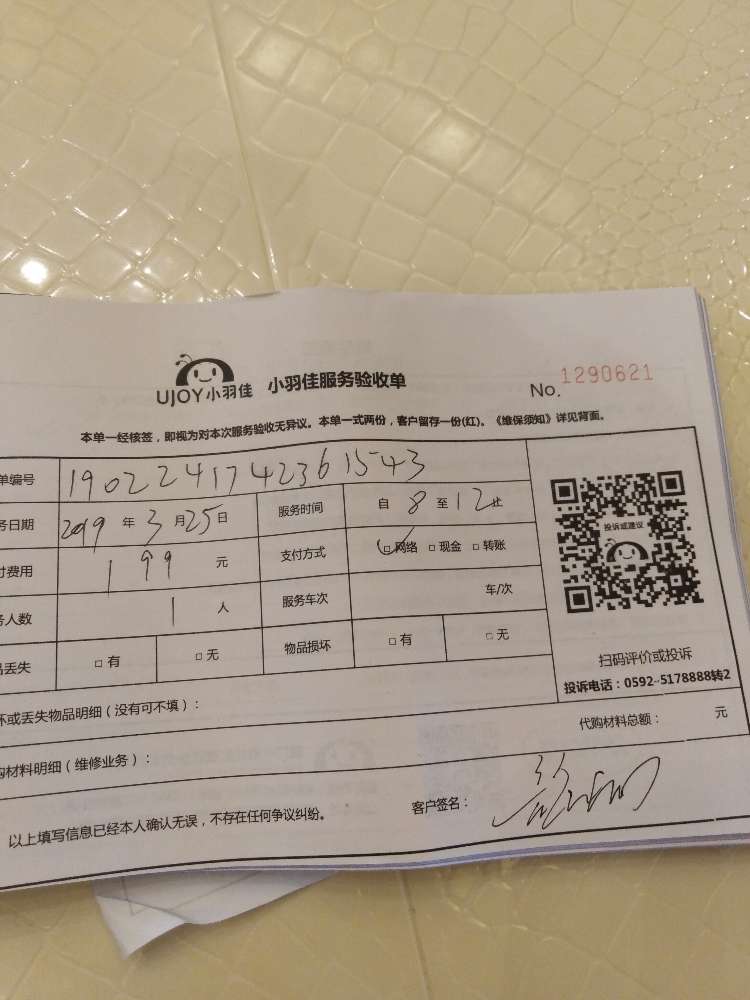 UJOY小羽佳 小羽佳服务验收单 No. 1290621
本单一经核签，即视为对本次服务验收无异议。本单一式两份，客户留存一份(红)。《维保须知》详见背面。
单编号 1902241742361543
务日期 2019 年 3 月 25 日 服务时间 自 8 至 12 止
付费用 199 元 支付方式 网络 现金 转账
务人数 1 人 服务车次 车/次
品丢失 有 无 物品损坏 有 无
投诉或建议
扫码评价或投诉
投诉电话：0592-5178888转2
坏或丢失物品明细（没有可不填）：
购材料明细（维修业务）： 代购材料总额： 元
以上填写信息已经本人确认无误，不存在任何争议纠纷。 客户签名：